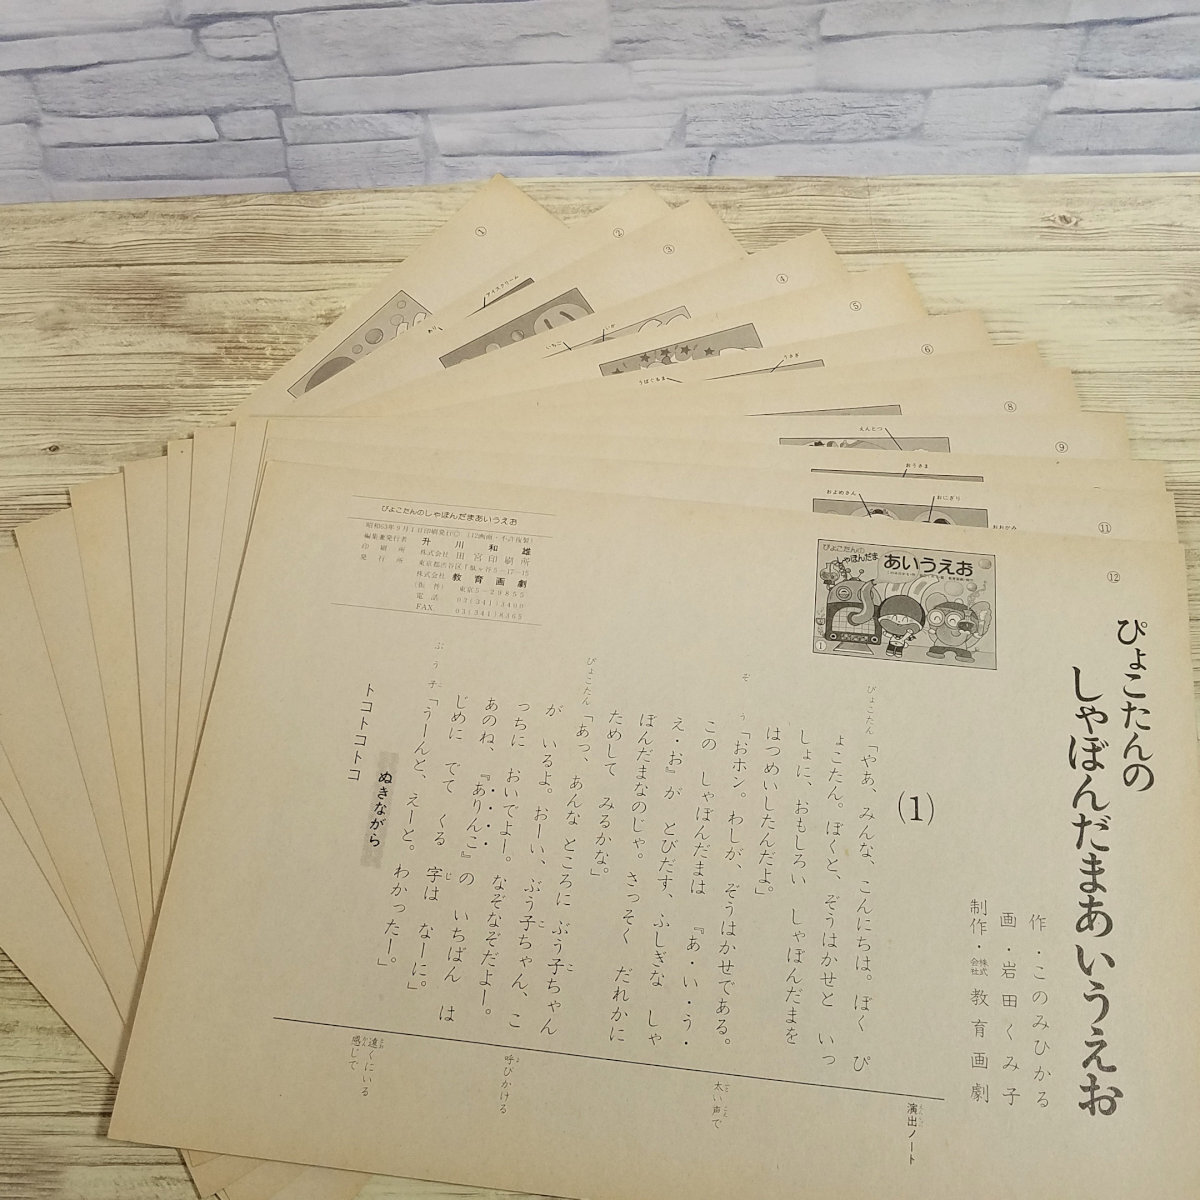 ①
②
③
④
⑤
⑥
⑧
⑨
⑪
⑫
アイスクリーム
あり
いちご
いか
うばぐるま
うさぎ
えんとつ
おうさま
およめさん
おにぎり
おおかみ
ぴょこたんの
しゃぼんだまあいうえお
作・このみひかる
画・岩田くみ子
制作・株式会社教育画劇
ぴょこたんの
しゃぼんだま
あいうえお
①
(1)
ぴょこたん「やあ、みんな、こんにちは。ぼく ぴ
ょこたん。ぼくと、ぞうはかせと いっ
しょに、おもしろい しゃぼんだまを
はつめいしたんだよ。」
ぞう「おホン。わしが、ぞうはかせである。
この しゃぼんだまは 『あ・い・う・
え・お』が とびだす、ふしぎな しゃ
ぼんだまなのじゃ。さっそく だれかに
ためして みるかな。」
ぴょこたん「あっ、あんな ところに ぶう子ちゃん
が いるよ。おーい、ぶう子ちゃん、こ
っちに おいでよー。なぞなぞだよー。
あのね、『ありんこ』の いちばん は
じめに でて くる 字は なーに。」
ぶう子「うーんと、えーと。わかったー。」
ぬきながら
トコトコトコ
演出ノート
太い声で
呼びかける
遠くにいる
感じで
ぴょこたんのしゃぼんだまあいうえお
昭和63年9月1日印刷発行© (12画面・不許複製)
編集兼発行者 升川和雄
印刷所 株式会社 田宮印刷所
発行所 東京都渋谷区千駄ヶ谷5-17-15
株式会社 教育画劇
(振替) 東京5-29855
電話 03(341)3400
FAX. 03(341)8365